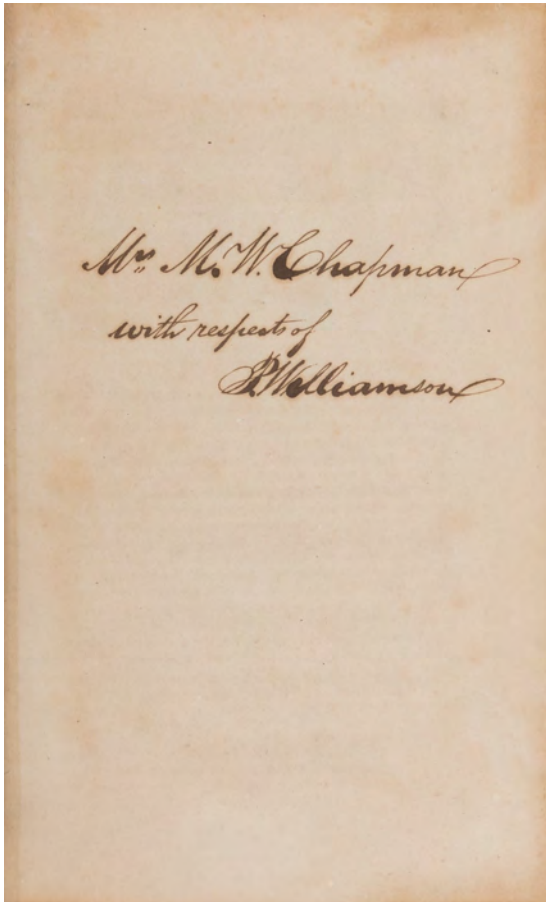 Mrs M. W. Chapman
with respects of
P. Williamson